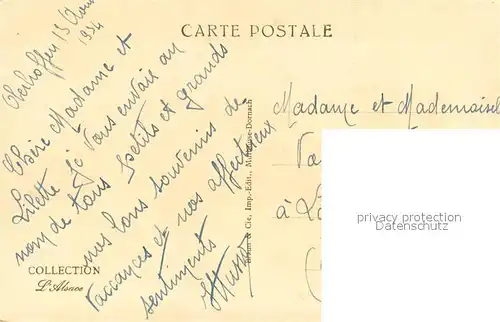 CARTE POSTALE
Oberhoffen 13 Août
1934
Chère Madame et
Lilette Je vous envoie au
nom de tous petits et grands
mes bons souvenirs de
vacances et nos affectueux
sentiments
Braun & Cie, Imp.-Edit., Mulhouse-Dornach
COLLECTION
L'Alsace
Madame et Mademoisel
à
privacy protection
Datenschutz